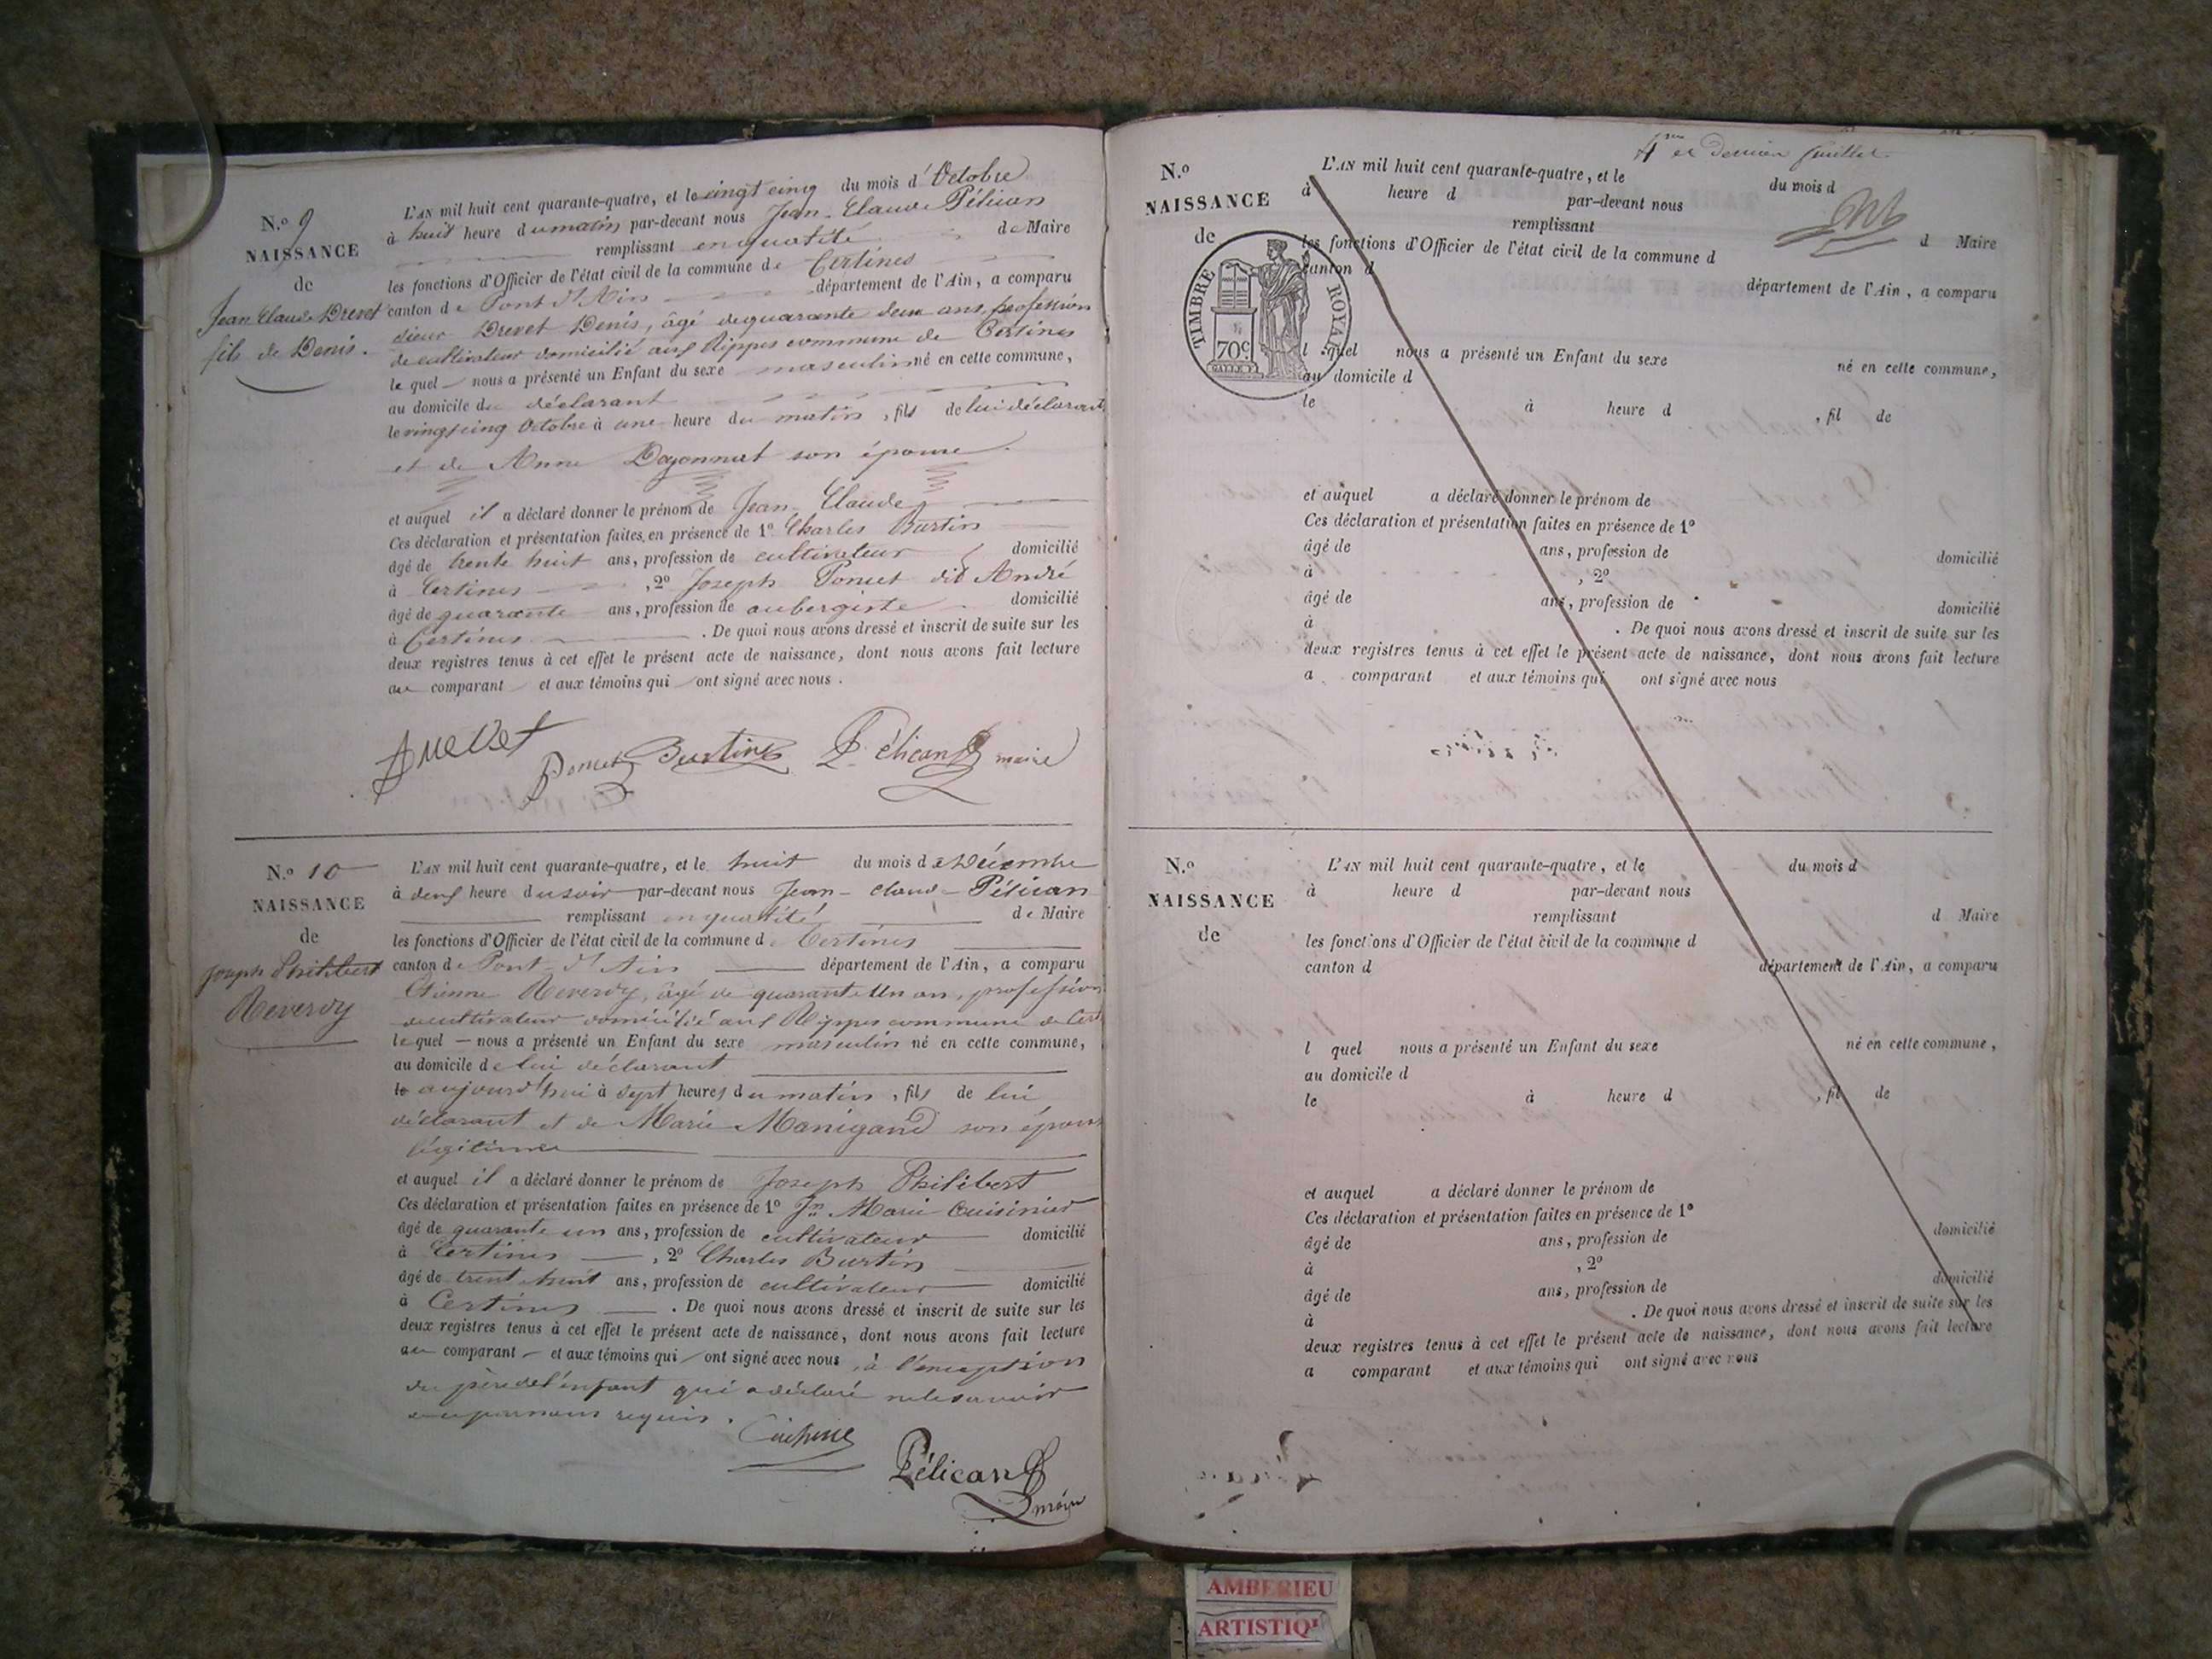 N.º 9
NAISSANCE
de
Jean Claude Drevet
fils de Denis.
L'AN mil huit cent quarante-quatre, et le vingt cinq du mois d'Octobre
à huit heure du matin par-devant nous Jean-Claude Pélican
remplissant en qualité de Maire
les fonctions d'Officier de l'état civil de la commune de Certines
canton de Pont d'Ain département de l'Ain, a comparu
sieur Drevet Denis, âgé de quarante deux ans, profession
de cultivateur domicilié aux Rippes commune de Certines
le quel nous a présenté un Enfant du sexe masculin né en cette commune,
au domicile du déclarant
le vingt cinq Octobre à une heure du matin, fils de lui déclarant
et de Anne son épouse.
et auquel il a déclaré donner le prénom de Jean Claude
Ces déclaration et présentation faites en présence de 1º Charles Burtin
âgé de trente huit ans, profession de cultivateur domicilié
à Certines, 2º Joseph Poncet dit André
âgé de quarante ans, profession de aubergiste domicilié
à Certines. De quoi nous avons dressé et inscrit de suite sur les
deux registres tenus à cet effet le présent acte de naissance, dont nous avons fait lecture
au comparant et aux témoins qui ont signé avec nous.
Drevet Poncet Burtin Pélican maire
N.º 10
NAISSANCE
de
Joseph Philibert
Reverdy
L'AN mil huit cent quarante-quatre, et le huit du mois de Décembre
à deux heure du soir par-devant nous Jean-Claude Pélican
remplissant en qualité de Maire
les fonctions d'Officier de l'état civil de la commune de Certines
canton de Pont-d'Ain département de l'Ain, a comparu
Etienne Reverdy, âgé de quarante un an, profession
de cultivateur domicilié aux Rippes commune de Cert
le quel nous a présenté un Enfant du sexe masculin né en cette commune,
au domicile de lui déclarant
le aujourd'hui à sept heures du matin, fils de lui
déclarant et de Marie Manigand son épouse
légitime
et auquel il a déclaré donner le prénom de Joseph Philibert
Ces déclaration et présentation faites en présence de 1º Jn Marie Cuisinier
âgé de quarante un ans, profession de cultivateur domicilié
à Certines, 2º Charles Burtin
âgé de trent huit ans, profession de cultivateur domicilié
à Certines. De quoi nous avons dressé et inscrit de suite sur les
deux registres tenus à cet effet le présent acte de naissance, dont nous avons fait lecture
au comparant et aux témoins qui ont signé avec nous, à l'exception
du père de l'enfant qui a déclaré ne le savoir
requis.
Pélican
maire
4me et dernier feuillet.
N.º
NAISSANCE
de
TIMBRE ROYAL
70c
L'AN mil huit cent quarante-quatre, et le du mois d
à heure d par-devant nous
remplissant d Maire
les fonctions d'Officier de l'état civil de la commune d
canton d département de l'Ain, a comparu
l quel nous a présenté un Enfant du sexe né en cette commune,
au domicile d
le à heure d , fil de
et auquel a déclaré donner le prénom de
Ces déclaration et présentation faites en présence de 1º
âgé de ans, profession de domicilié
à , 2º
âgé de ans, profession de domicilié
à . De quoi nous avons dressé et inscrit de suite sur les
deux registres tenus à cet effet le présent acte de naissance, dont nous avons fait lecture
a comparant et aux témoins qui ont signé avec nous
N.º
NAISSANCE
de
L'AN mil huit cent quarante-quatre, et le du mois d
à heure d par-devant nous
remplissant d Maire
les fonctions d'Officier de l'état civil de la commune d
canton d département de l'Ain, a comparu
l quel nous a présenté un Enfant du sexe né en cette commune,
au domicile d
le à heure d , fil de
et auquel a déclaré donner le prénom de
Ces déclaration et présentation faites en présence de 1º
âgé de ans, profession de domicilié
à , 2º
âgé de ans, profession de domicilié
à . De quoi nous avons dressé et inscrit de suite sur les
deux registres tenus à cet effet le présent acte de naissance, dont nous avons fait lecture
a comparant et aux témoins qui ont signé avec nous
AMBERIEU
ARTISTIQ